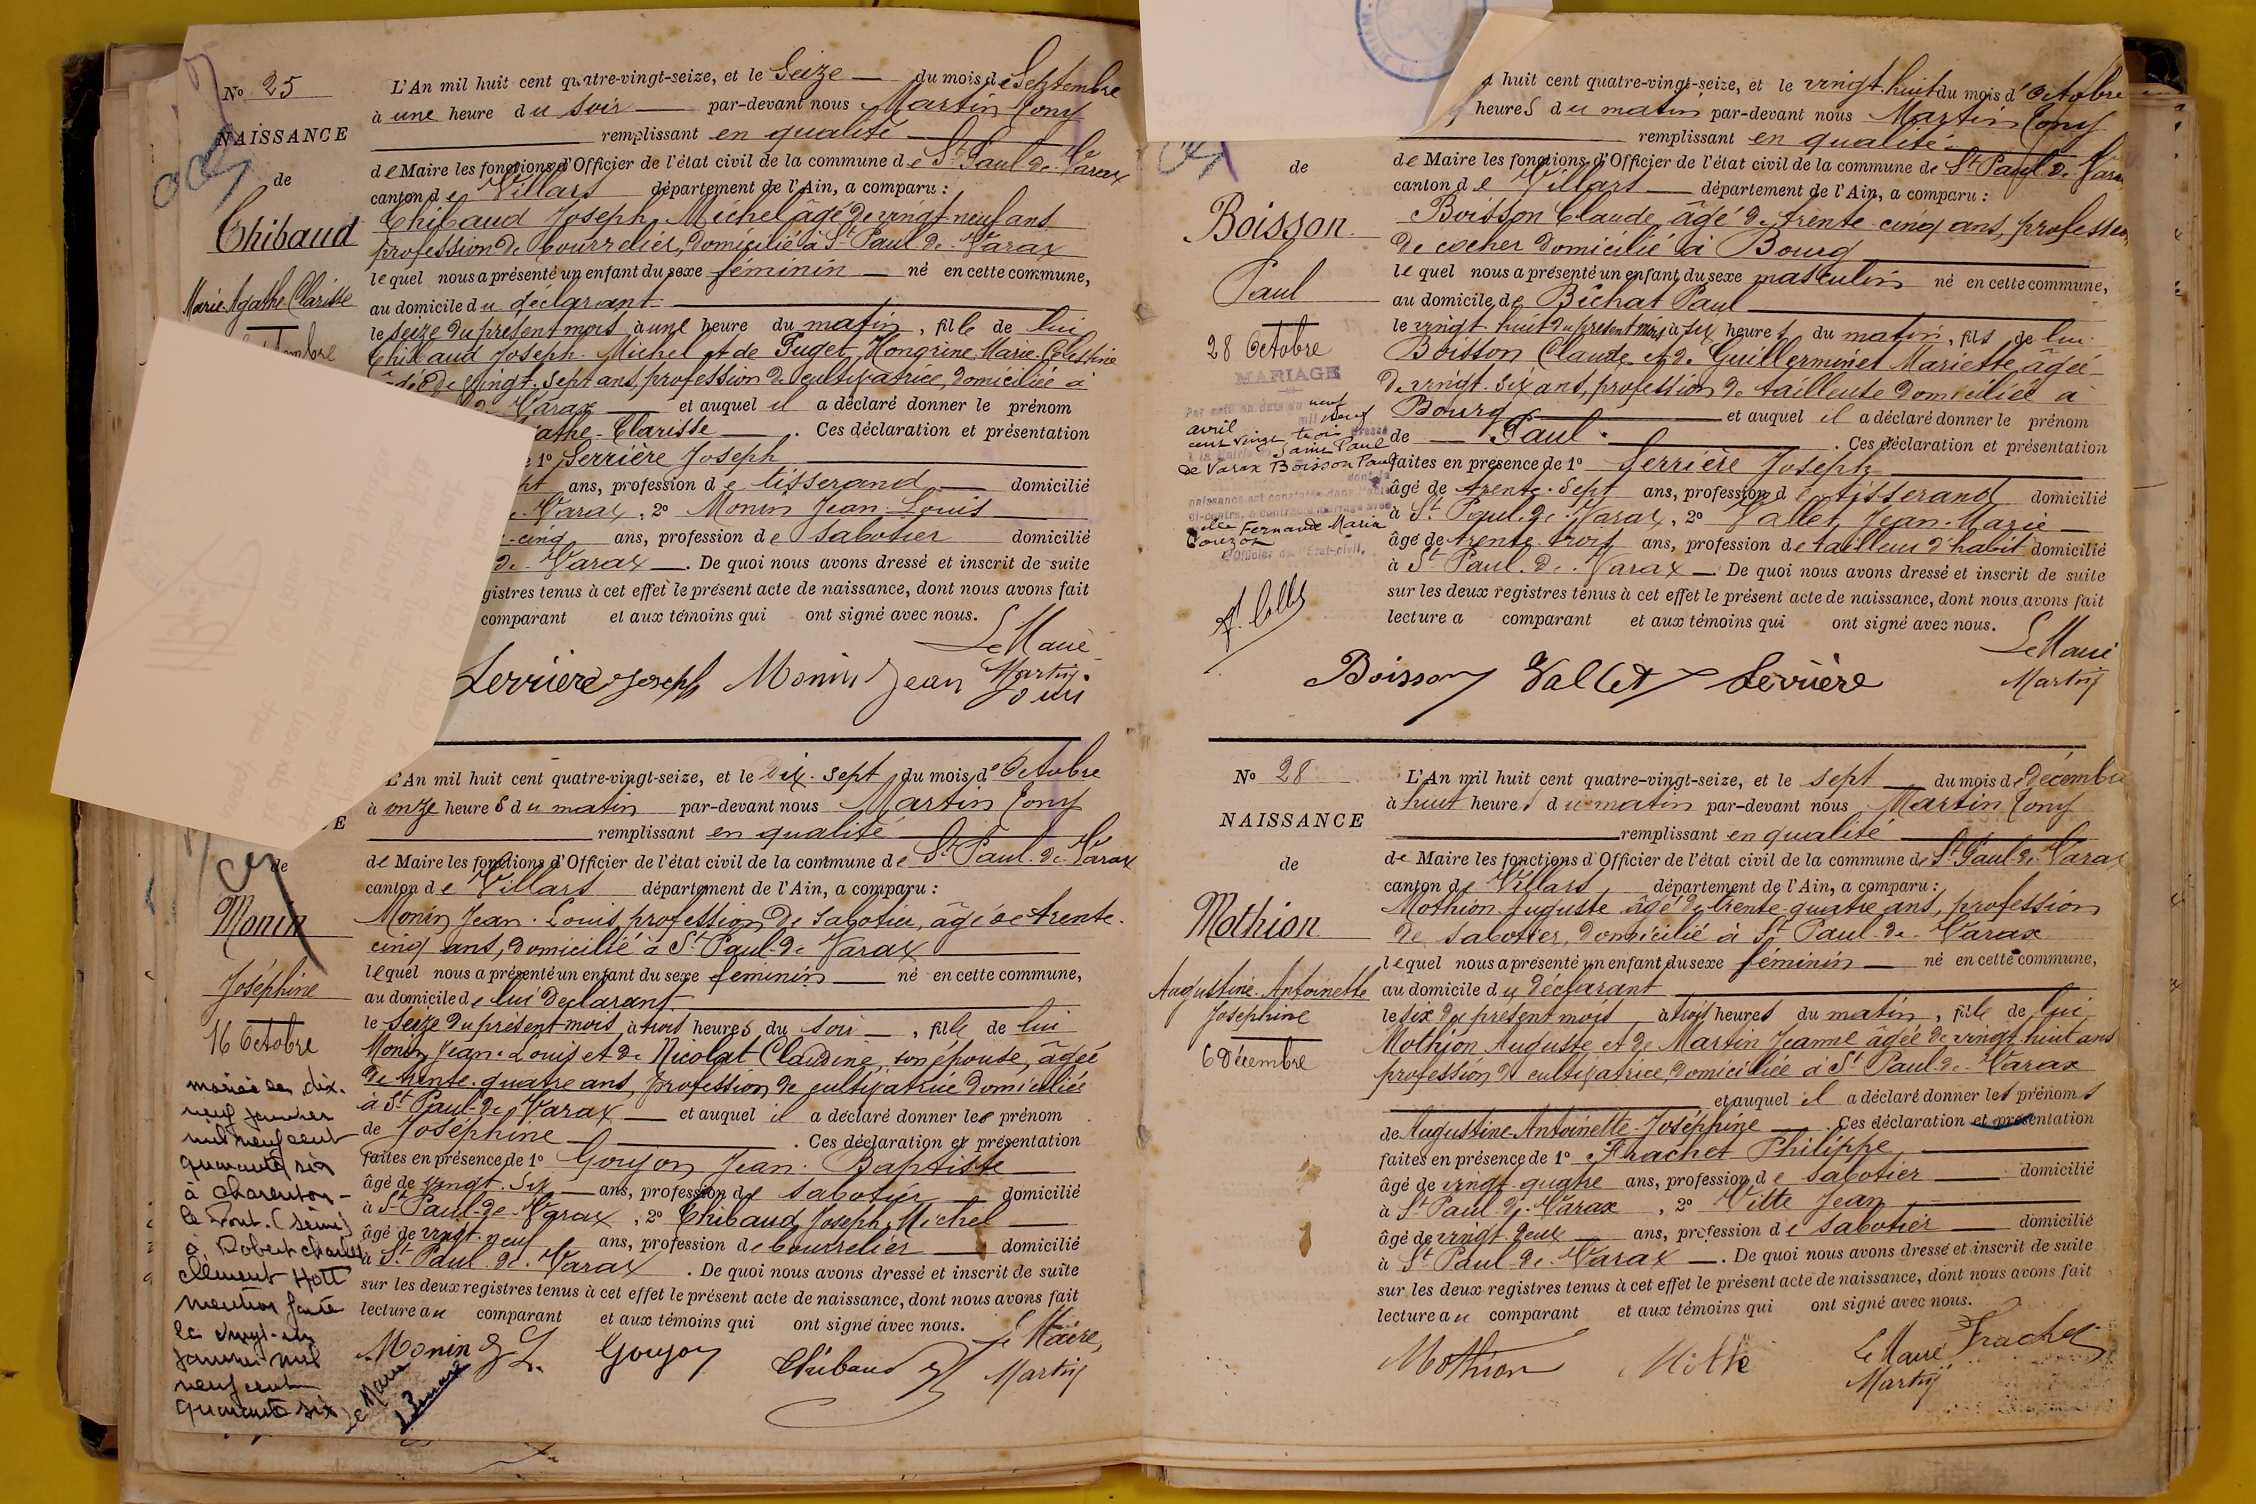 No 25
NAISSANCE
de
Thibaud
Marie Agathe Clarisse
L'An mil huit cent quatre-vingt-seize, et le Seize du mois de Septembre
à une heure du soir par-devant nous Martin Tony
remplissant en qualité
de Maire les fonctions d'Officier de l'état civil de la commune de St Paul-de-Varax
canton de Villars département de l'Ain, a comparu :
Thibaud Joseph Michel âgé de vingt-neuf ans
profession de bourrelier, domicilié à St Paul-de-Varax
lequel nous a présenté un enfant du sexe féminin né en cette commune,
au domicile du déclarant
le seize du présent mois à une heure du matin, fille de lui
Thibaud Joseph-Michel et de Puget Marie-Célestine
âgée de vingt-sept ans, profession de cultivatrice, domiciliée à
de Varax et auquel il a déclaré donner le prénom
Agathe-Clarisse. Ces déclaration et présentation
1o Serrière Joseph
ans, profession de tisserand domicilié
Varax, 2o Monin Jean-Louis
-cinq ans, profession de sabotier domicilié
de-Varax. De quoi nous avons dressé et inscrit de suite
gistres tenus à cet effet le présent acte de naissance, dont nous avons fait
comparant et aux témoins qui ont signé avec nous.
Le Maire
Serrière Joseph Monin Jean Martin
Louis
E
de
Monin
Joséphine
16 Octobre
mariée le dix-
neuf janvier
mil neuf cent
quarante six
à Charenton-
le Pont (Seine)
à Robert Charles
Clément Hott
mention faite
le vingt-un
janvier mil
neuf cent
quarante six
Le Maire
L'An mil huit cent quatre-vingt-seize, et le dix-sept du mois d'Octobre
à onze heures du matin par-devant nous Martin Tony
remplissant en qualité
de Maire les fonctions d'Officier de l'état civil de la commune de St Paul-de-Varax
canton de Villars département de l'Ain, a comparu :
Monin Jean-Louis, profession de sabotier, âgé de trente-
cinq ans, domicilié à St Paul-de-Varax
lequel nous a présenté un enfant du sexe féminin né en cette commune,
au domicile de lui déclarant
le seize du présent mois à trois heures du soir, fille de lui
Monin Jean-Louis et de Nicolat Claudine, son épouse, âgée
de trente-quatre ans, profession de cultivatrice domiciliée
à St Paul-de-Varax et auquel il a déclaré donner les prénom
de Joséphine. Ces déclaration et présentation
faites en présence de 1o Goujon Jean-Baptiste
âgé de vingt-six ans, profession de sabotier domicilié
à St Paul-de-Varax, 2o Thibaud Joseph Michel
âgé de vingt-neuf ans, profession de bourrelier domicilié
à St Paul-de-Varax. De quoi nous avons dressé et inscrit de suite
sur les deux registres tenus à cet effet le présent acte de naissance, dont nous avons fait
lecture au comparant et aux témoins qui ont signé avec nous.
Le Maire,
Monin J L. Goujon Thibaud Martin
de
Boisson
Paul
28 Octobre
MARIAGE
neuf
avril mil neuf
cent vingt trois
Saint Paul
de Varax Boisson Paul
Fernande Maria
Officier de l'Etat-civil,
huit cent quatre-vingt-seize, et le vingt-huit du mois d'Octobre
heures du matin par-devant nous Martin Tony
remplissant en qualité
de Maire les fonctions d'Officier de l'état civil de la commune de St Paul-de-Varax
canton de Villars département de l'Ain, a comparu :
Boisson Claude, âgé de trente-cinq ans, profession
de cocher domicilié à Bourg
lequel nous a présenté un enfant du sexe masculin né en cette commune,
au domicile de Bichat Paul
le vingt-huit du présent mois à six heures du matin, fils de lui
Boisson Claude et de Guillerminet Mariette, âgée
de vingt-six ans, profession de tailleuse domiciliée à
Bourg et auquel il a déclaré donner le prénom
de Paul. Ces déclaration et présentation
faites en présence de 1o Serrière Joseph
âgé de trente-sept ans, profession de tisserand domicilié
à St Paul-de-Varax, 2o Vallet Jean-Marie
âgé de trente-trois ans, profession de tailleur d'habit domicilié
à St Paul-de-Varax. De quoi nous avons dressé et inscrit de suite
sur les deux registres tenus à cet effet le présent acte de naissance, dont nous avons fait
lecture a comparant et aux témoins qui ont signé avec nous.
Le Maire
Boisson Vallet Serrière Martin
No 28
NAISSANCE
de
Mothion
Augustine-Antoinette
Joséphine
6 Décembre
L'An mil huit cent quatre-vingt-seize, et le sept du mois de décembre
à huit heures du matin par-devant nous Martin Tony
remplissant en qualité
de Maire les fonctions d'Officier de l'état civil de la commune de St Paul-de-Varax
canton de Villars département de l'Ain, a comparu :
Mothion Auguste âgé de trente-quatre ans, profession
de sabotier, domicilié à St Paul-de-Varax
lequel nous a présenté un enfant du sexe féminin né en cette commune,
au domicile du déclarant
le six du présent mois à trois heures du matin, fille de lui
Mothion Auguste et de Martin Jeanne âgée de vingt-huit ans
profession de cultivatrice, domiciliée à St Paul-de-Varax
et auquel il a déclaré donner les prénoms
de Augustine-Antoinette-Joséphine. Ces déclaration et présentation
faites en présence de 1o Frachet Philippe
âgé de vingt-quatre ans, profession de sabotier domicilié
à St Paul-de-Varax, 2o Vitte Jean
âgé de vingt-deux ans, profession de sabotier domicilié
à St Paul-de-Varax. De quoi nous avons dressé et inscrit de suite
sur les deux registres tenus à cet effet le présent acte de naissance, dont nous avons fait
lecture au comparant et aux témoins qui ont signé avec nous.
Mothion Vitte Le Maire Frachet
Martin